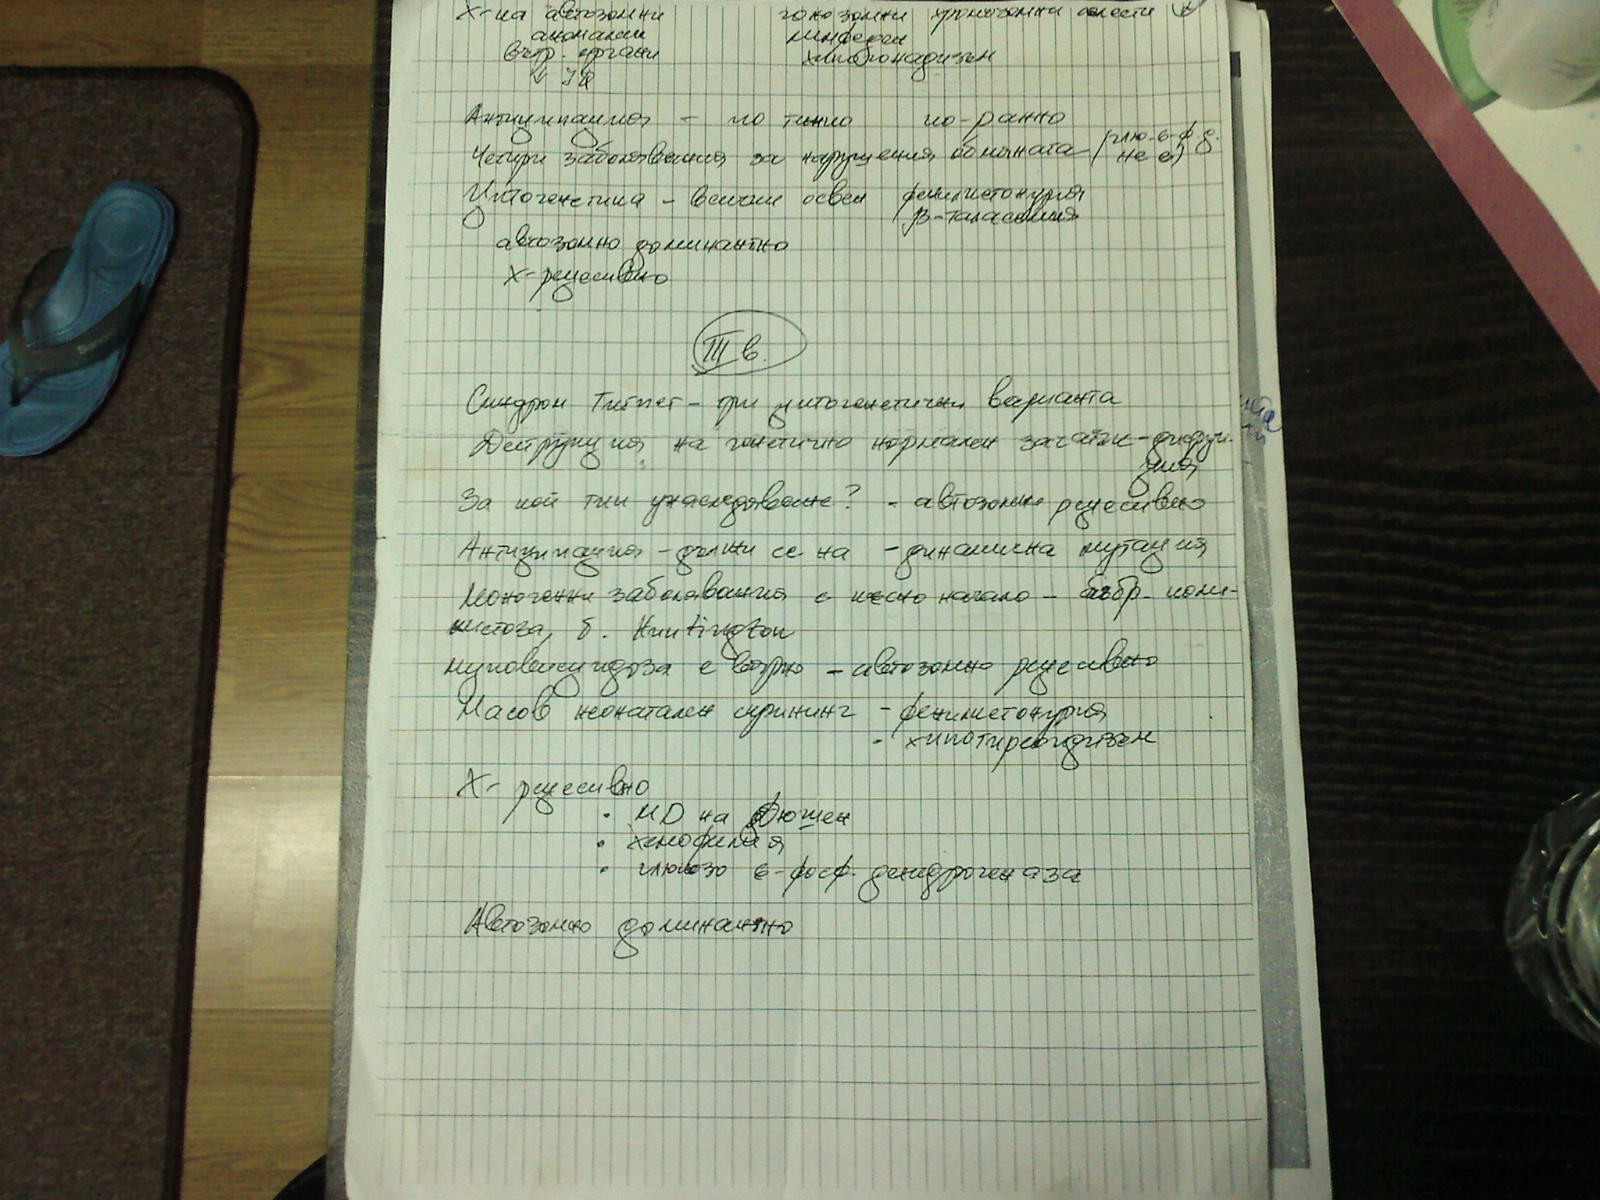 Х-на автозомни гонозомни хромозомни болести
аномалии лимфедем
вътр. органи хипогонадизъм
↓ IQ
Антиципация - по тежко по-рано
Четири заболявания за нарушения обмяната (глю-6-ф.д. не е)
Цитогенетика - всички освен фенилкетонурия
β-таласемия
автозомно доминантно
Х-рецесивно
III в.
Синдром Търнер - три цитогенетични варианта
Деструкция на генетично нормален зачатък - дизруп-
ция
За кой тип унаследяване? - автозомно рецесивно
Антиципация - дължи се на - динамична мутация
Моногенни заболявания с късно начало - бъбр. поли-
кистоза, б. Huntington
муковисцидоза е вярно - автозомно рецесивно
Масов неонатален скрининг - фенилкетонурия
- хипотиреоидизъм
Х- рецесивно
• МD на Дюшен
• хемофилия
• глюкозо 6-фосф. дехидрогеназа
Автозомно доминантно